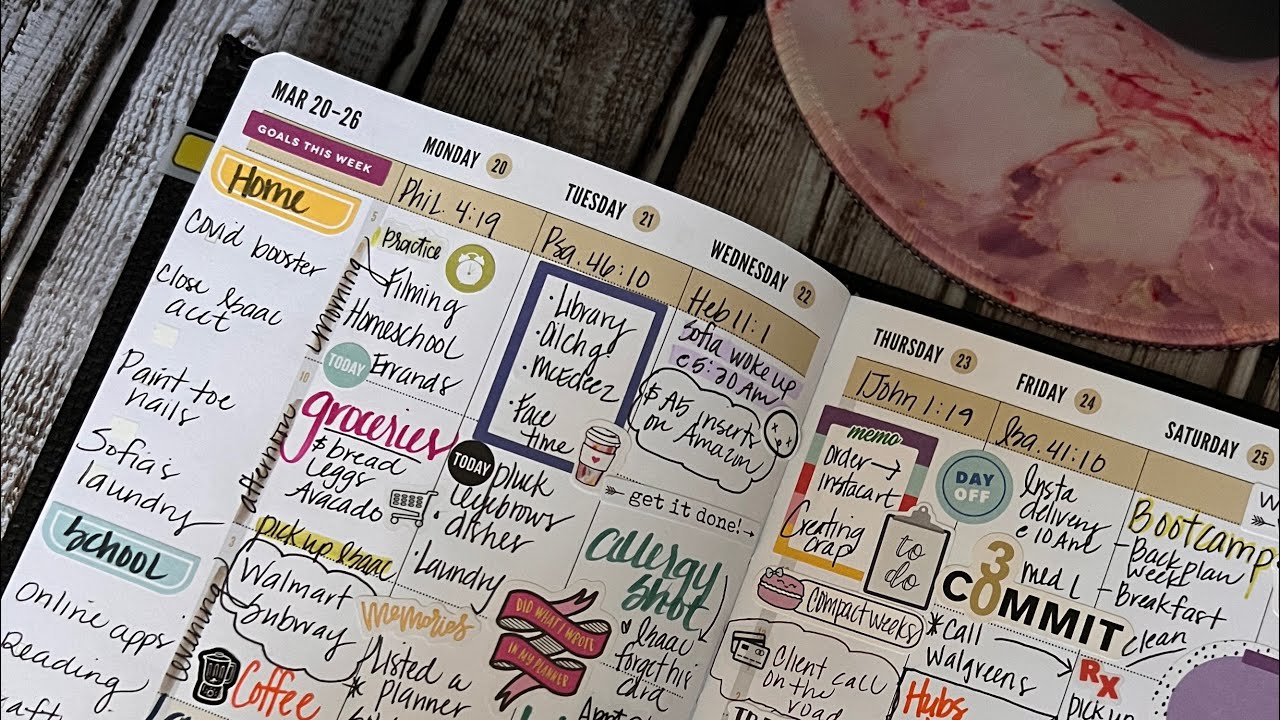 MAR 20-26
GOALS THIS WEEK
Home
Covid booster
Close Isaac
acct
Paint toe
nails
Sofia's
laundry
School
Online apps
Reading
MONDAY 20
Phil. 4:19
5
morning
Practice
Filming
Homeschool
TODAY
Errands
10
afternoon
groceries
$ bread
eggs
Avacado
3
evening
pick up Isaac
Walmart
Subway
Coffee
TUESDAY 21
Psa. 46:10
• Library
• McEdeez
• Face
time
TODAY
pluck
eyebrows
• dishes
• Laundry
memories
Listed a
* planner
WEDNESDAY 22
Heb 11:1
Sofia woke up
@ 5:30 AM
$ A5 inserts
on Amazon
get it done!
allergy
shot
Isaac
forget his
card
DID WHAT I WROTE
IN MY PLANNER
THURSDAY 23
1John 1:19
memo
Order →
instacart
Creating
crap
to
do
Compact weeks
Client call
on the
road
FRIDAY 24
Isa. 41:10
DAY
OFF
Insta
delivery
@ 10 AM
30
COMMIT
med L
* Call
Walgreens
Hubs
SATURDAY 25
Bootcamp
- Back plan
week
- Breakfast
clean
Rx
PICK UP